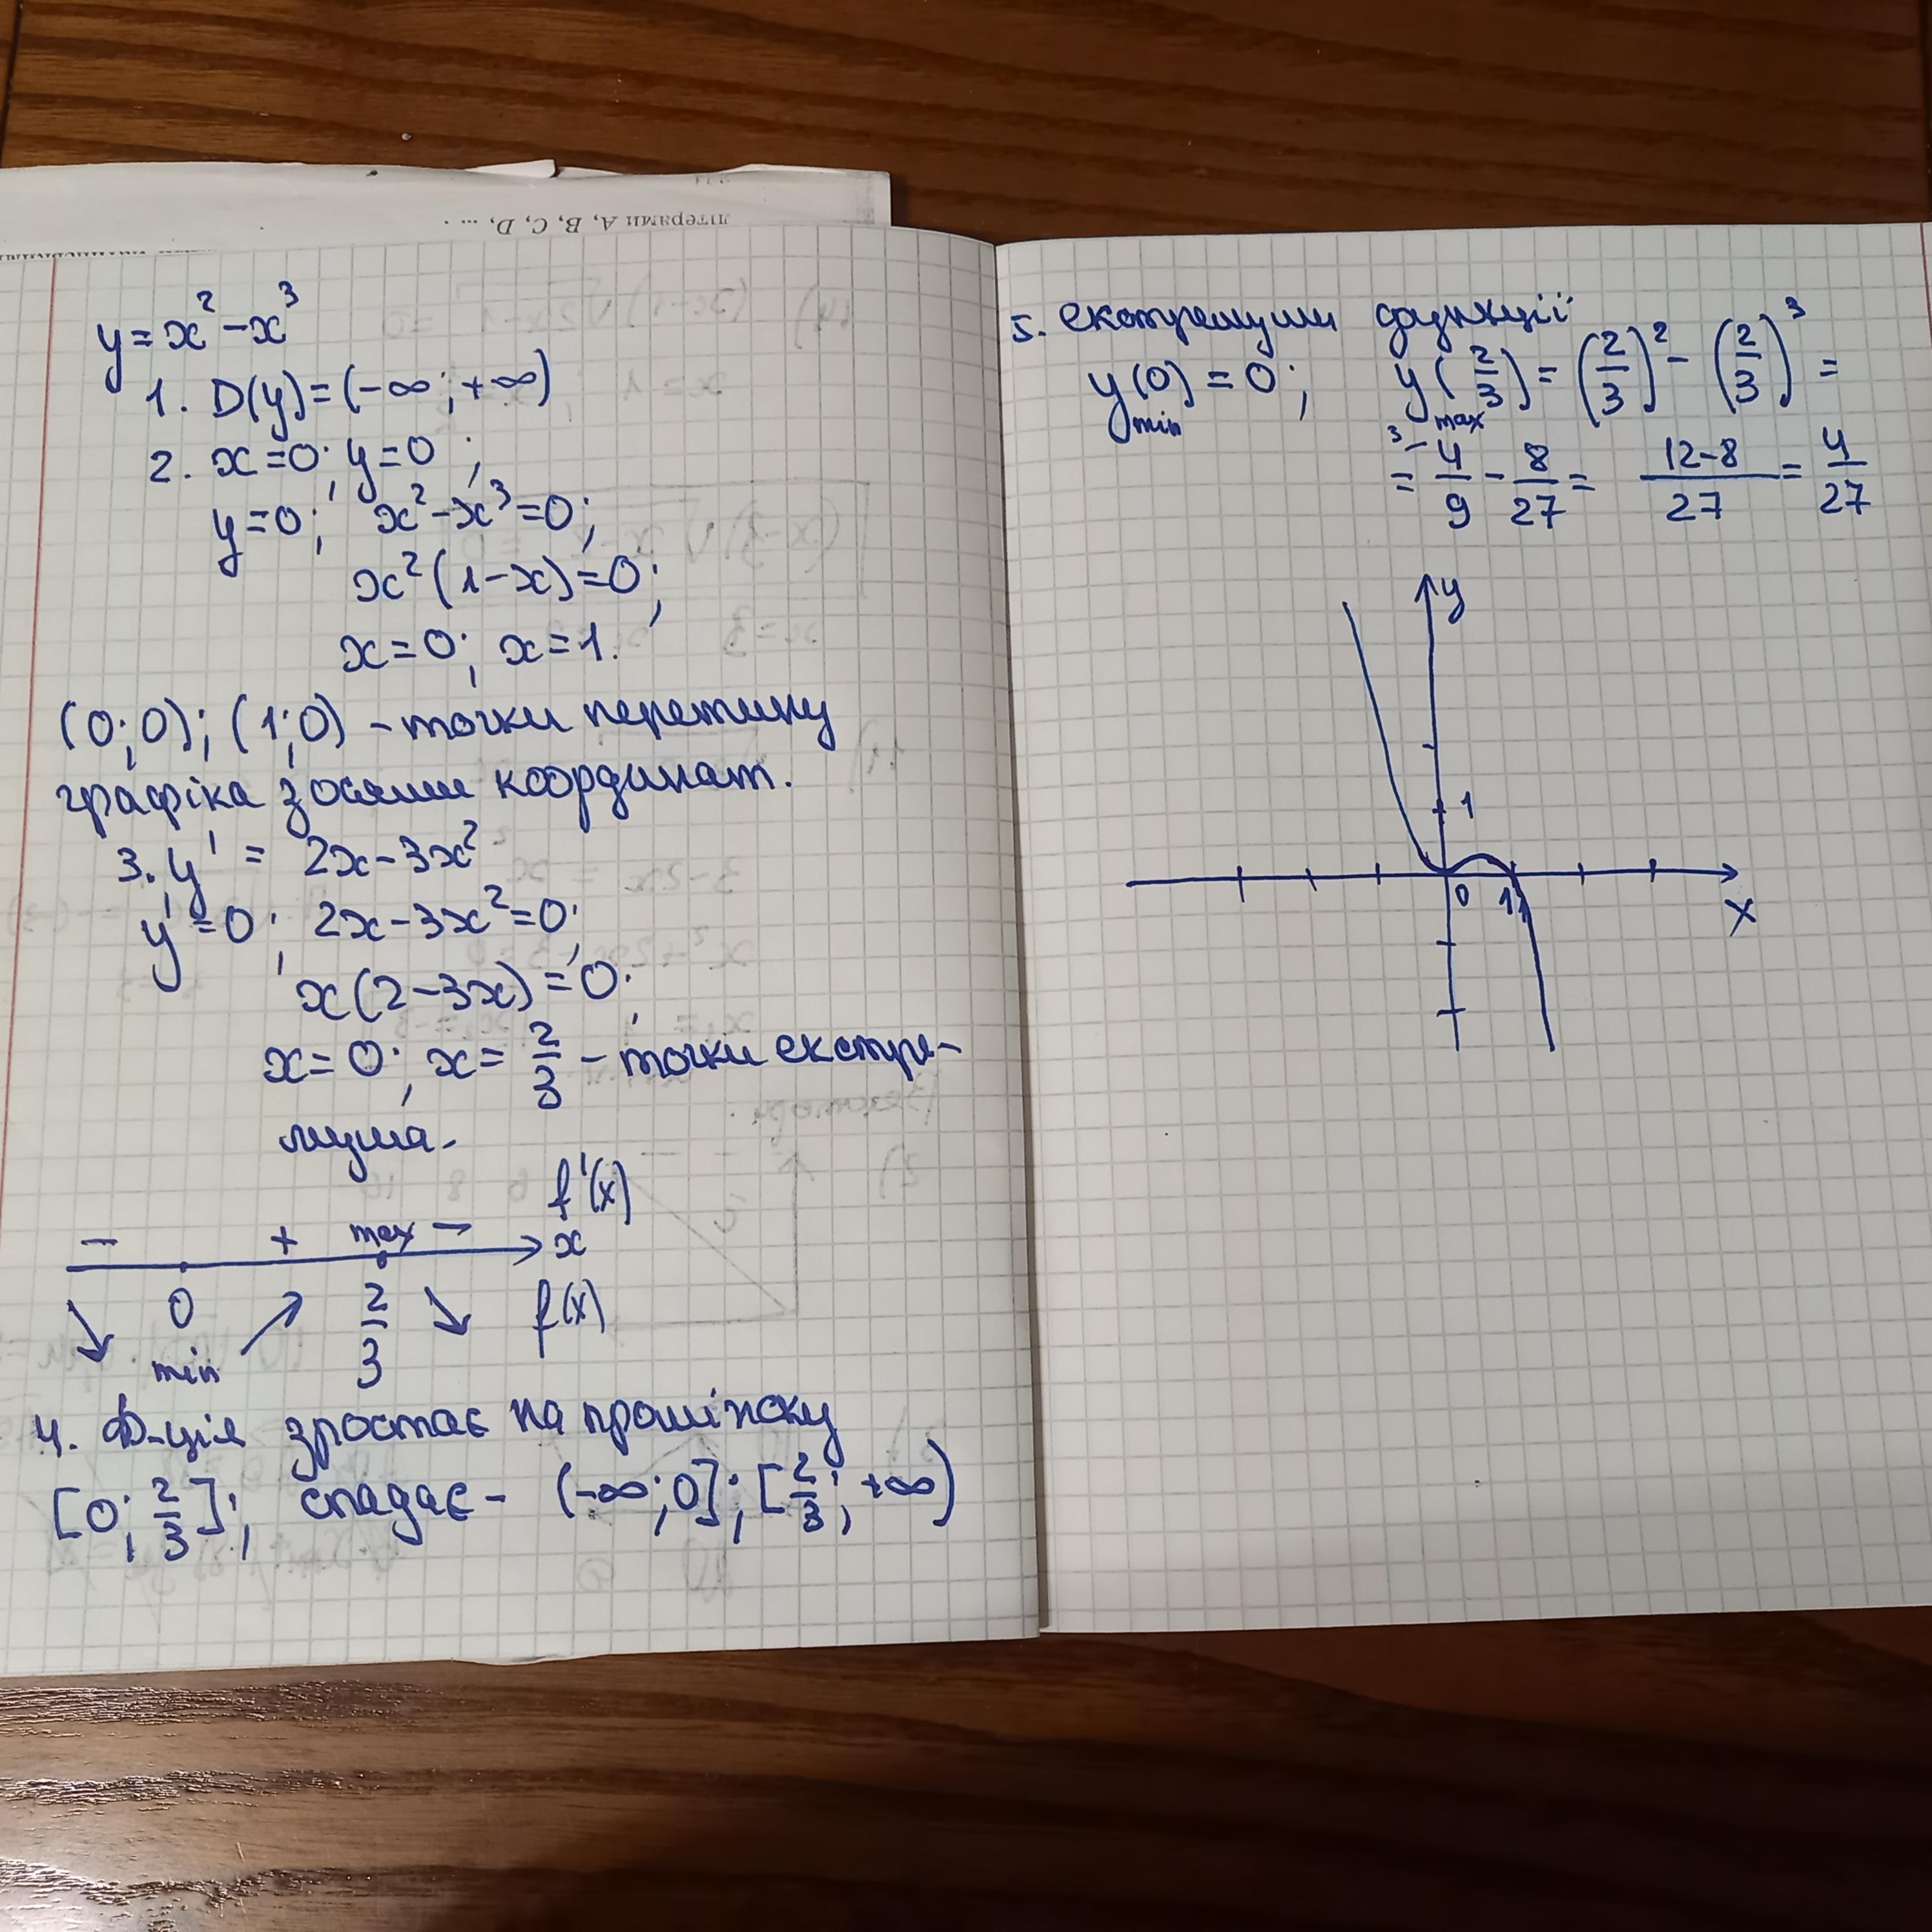 літерами A, B, C, D, ... .
y = x² - x³
1. D(y) = (-∞; +∞)
2. x=0; y=0;
y=0; x² - x³ = 0;
x²(1-x) = 0;
x=0; x=1.
(0;0); (1;0) - точки перетину
графіка з осями координат.
3. y' = 2x - 3x²
y' = 0; 2x - 3x² = 0;
x(2-3x) = 0;
x=0; x = 2/3 - точки екстре-
мума.
f'(x)
- + max - x
0 2/3 f(x)
↘ min ↗ ↘
4. Ф-ція зростає на проміжку
[0; 2/3]; спадає - (-∞; 0]; [2/3; +∞)
5. екстремуми функції
y min (0) = 0; y max (2/3) = (2/3)² - (2/3)³ =
= ³⁻4/9 - 8/27 = 12-8/27 = 4/27
y
1
0 1
x